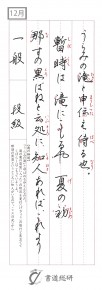 12月
うらみの滝と申伝え侍る也。
暫時は滝にこもるや夏の初
那すの黒ばねと云処に、知人あれば、これより
一般
段級
書道総研